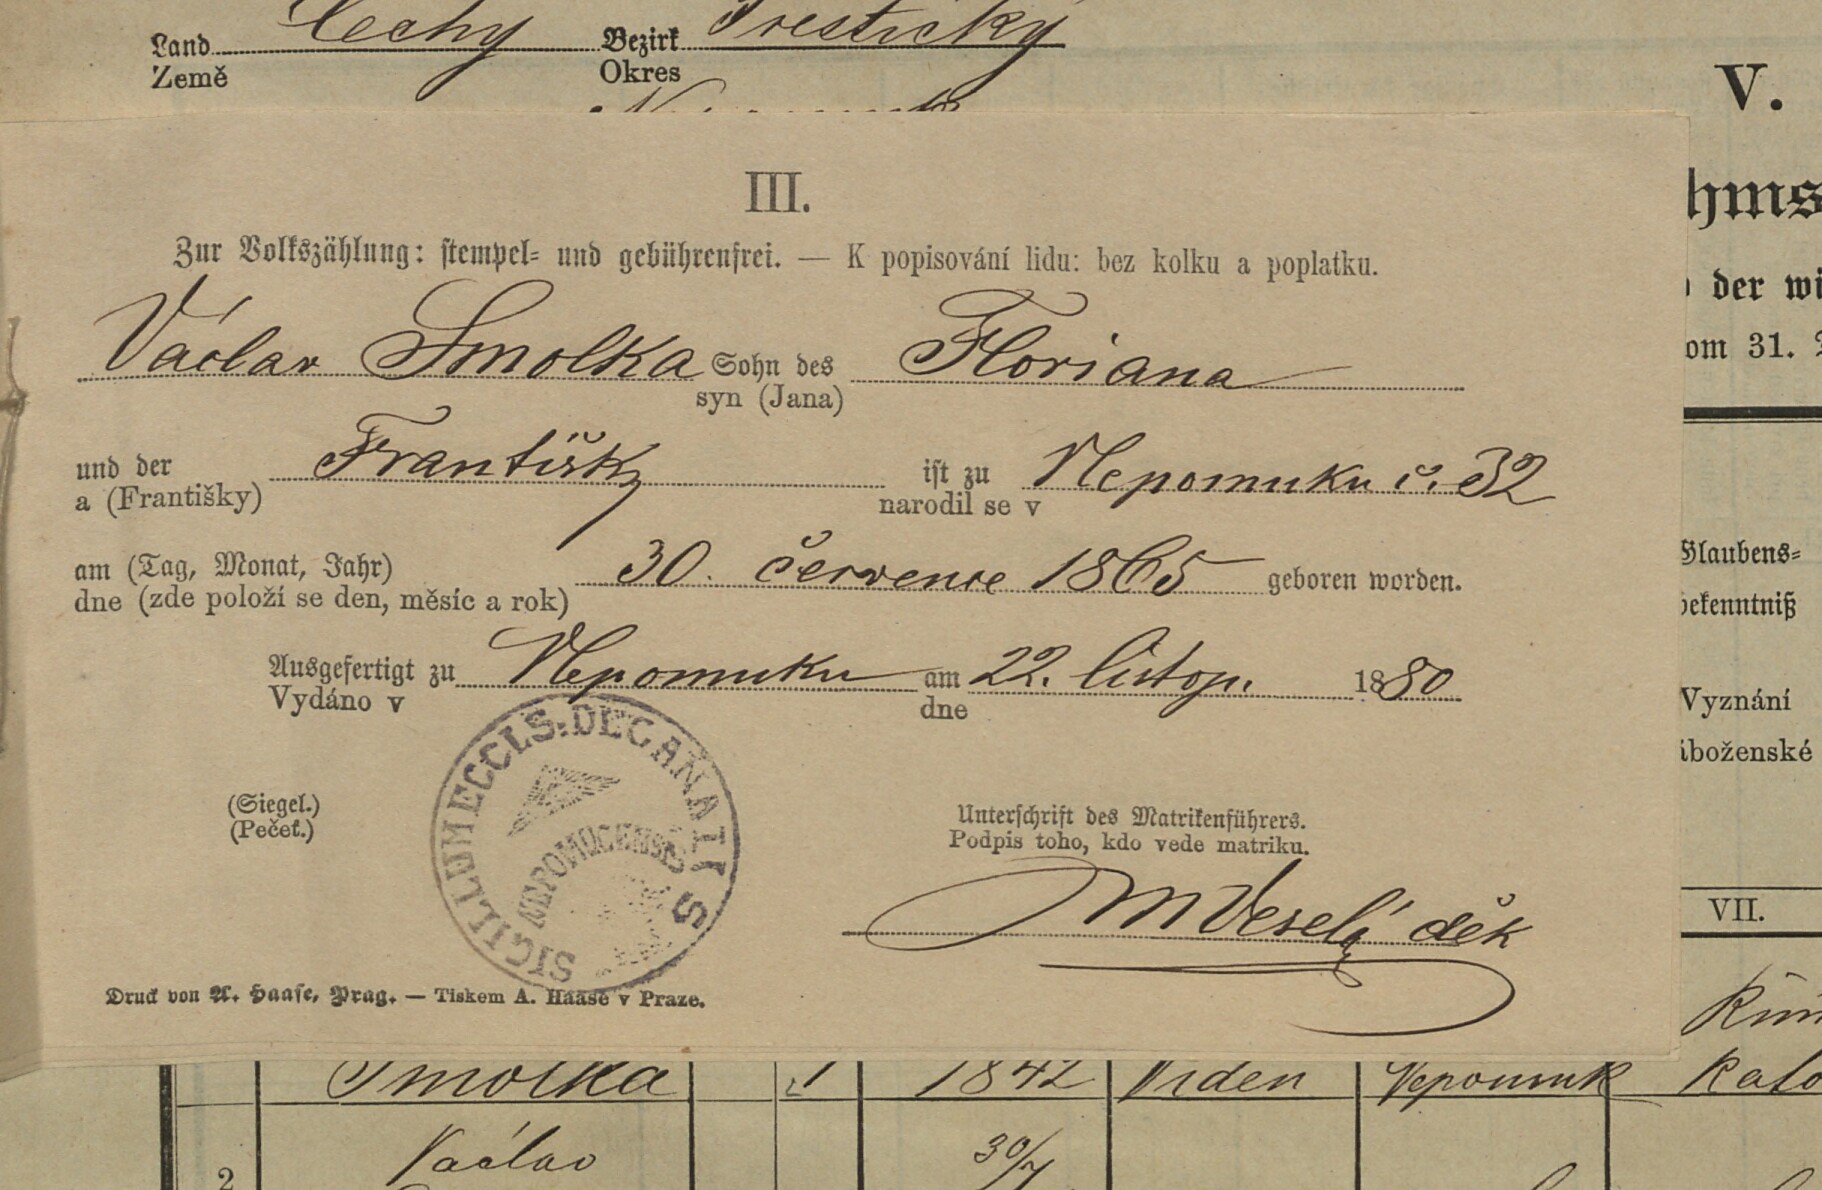 Land Čechy Bezirk Přestický
Země Okres
V.
III.
Zur Volkszählung: stempel- und gebührenfrei. — K popisování lidu: bez kolku a poplatku.
hms
der wi
om 31.
Václav Smolka Sohn des Floriana
syn (Jana)
und der Františky ist zu Nepomuku č. 32
a (Františky) narodil se v
am (Tag, Monat, Jahr) 30. července 1865 geboren worden.
dne (zde položí se den, měsíc a rok)
Glaubens-
bekenntniß
Ausgefertigt zu Nepomuku am 22. listop. 1880
Vydáno v dne
Vyznání
áboženské
SIGILLUM ECCLS. DECANATIS
NEPOMUCENSIS
(Siegel.)
(Pečeť.)
Unterschrift des Matrikenführers.
Podpis toho, kdo vede matriku.
M Veselý děk
VII.
Druck von A. Haase, Prag. — Tiskem A. Haase v Praze.
Řím
Smolka 1 1842 Viden Nepomuk Kato
2 Václav 30/7